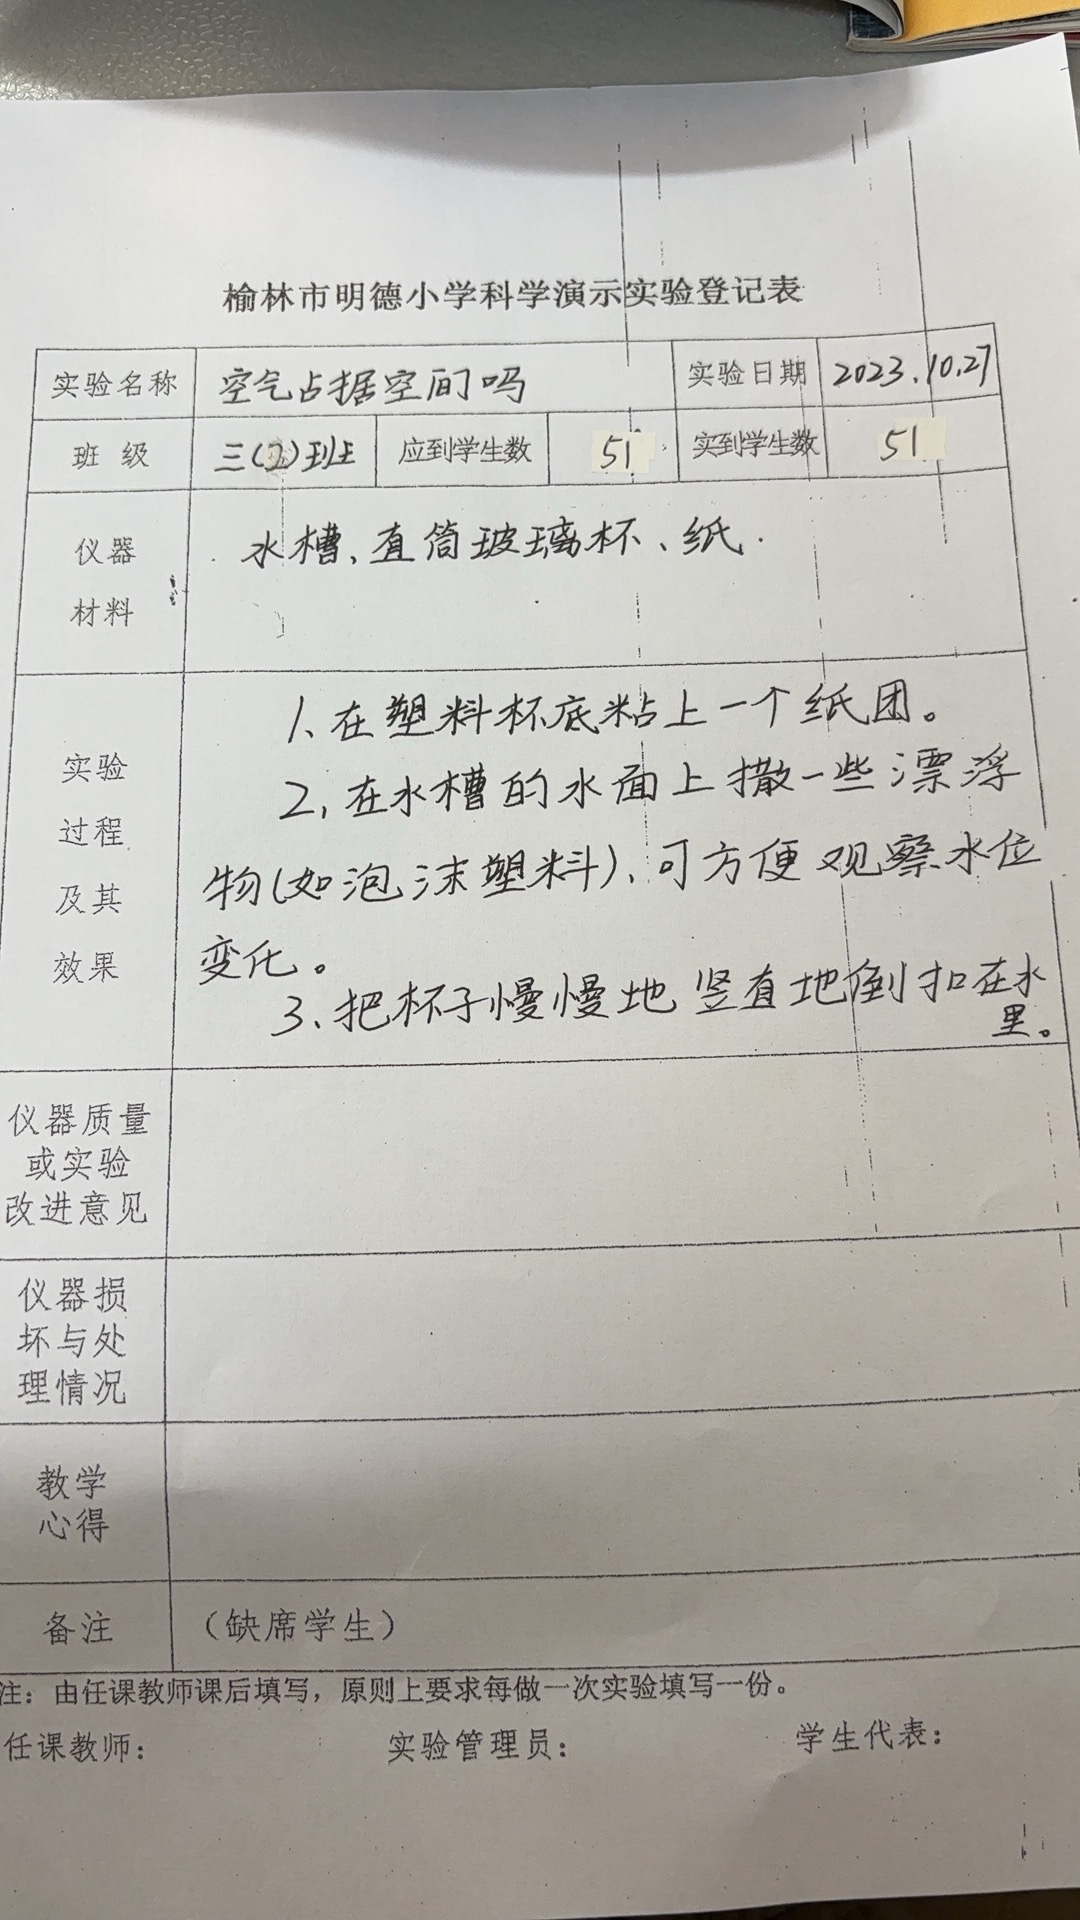 榆林市明德小学科学演示实验登记表
实验名称 空气占据空间吗 实验日期 2023.10.27
班级 三(2)班 应到学生数 51 实到学生数 51
仪器
材料
水槽、直筒玻璃杯、纸.
实验
过程
及其
效果
1、在塑料杯底粘上一个纸团。
2,在水槽的水面上撒一些漂浮
物(如泡沫塑料)、可方便观察水位
变化。
3、把杯子慢慢地竖直地倒扣在水
里。
仪器质量
或实验
改进意见
仪器损
坏与处
理情况
教学
心得
备注 (缺席学生)
注：由任课教师课后填写，原则上要求每做一次实验填写一份。
任课教师： 实验管理员： 学生代表：